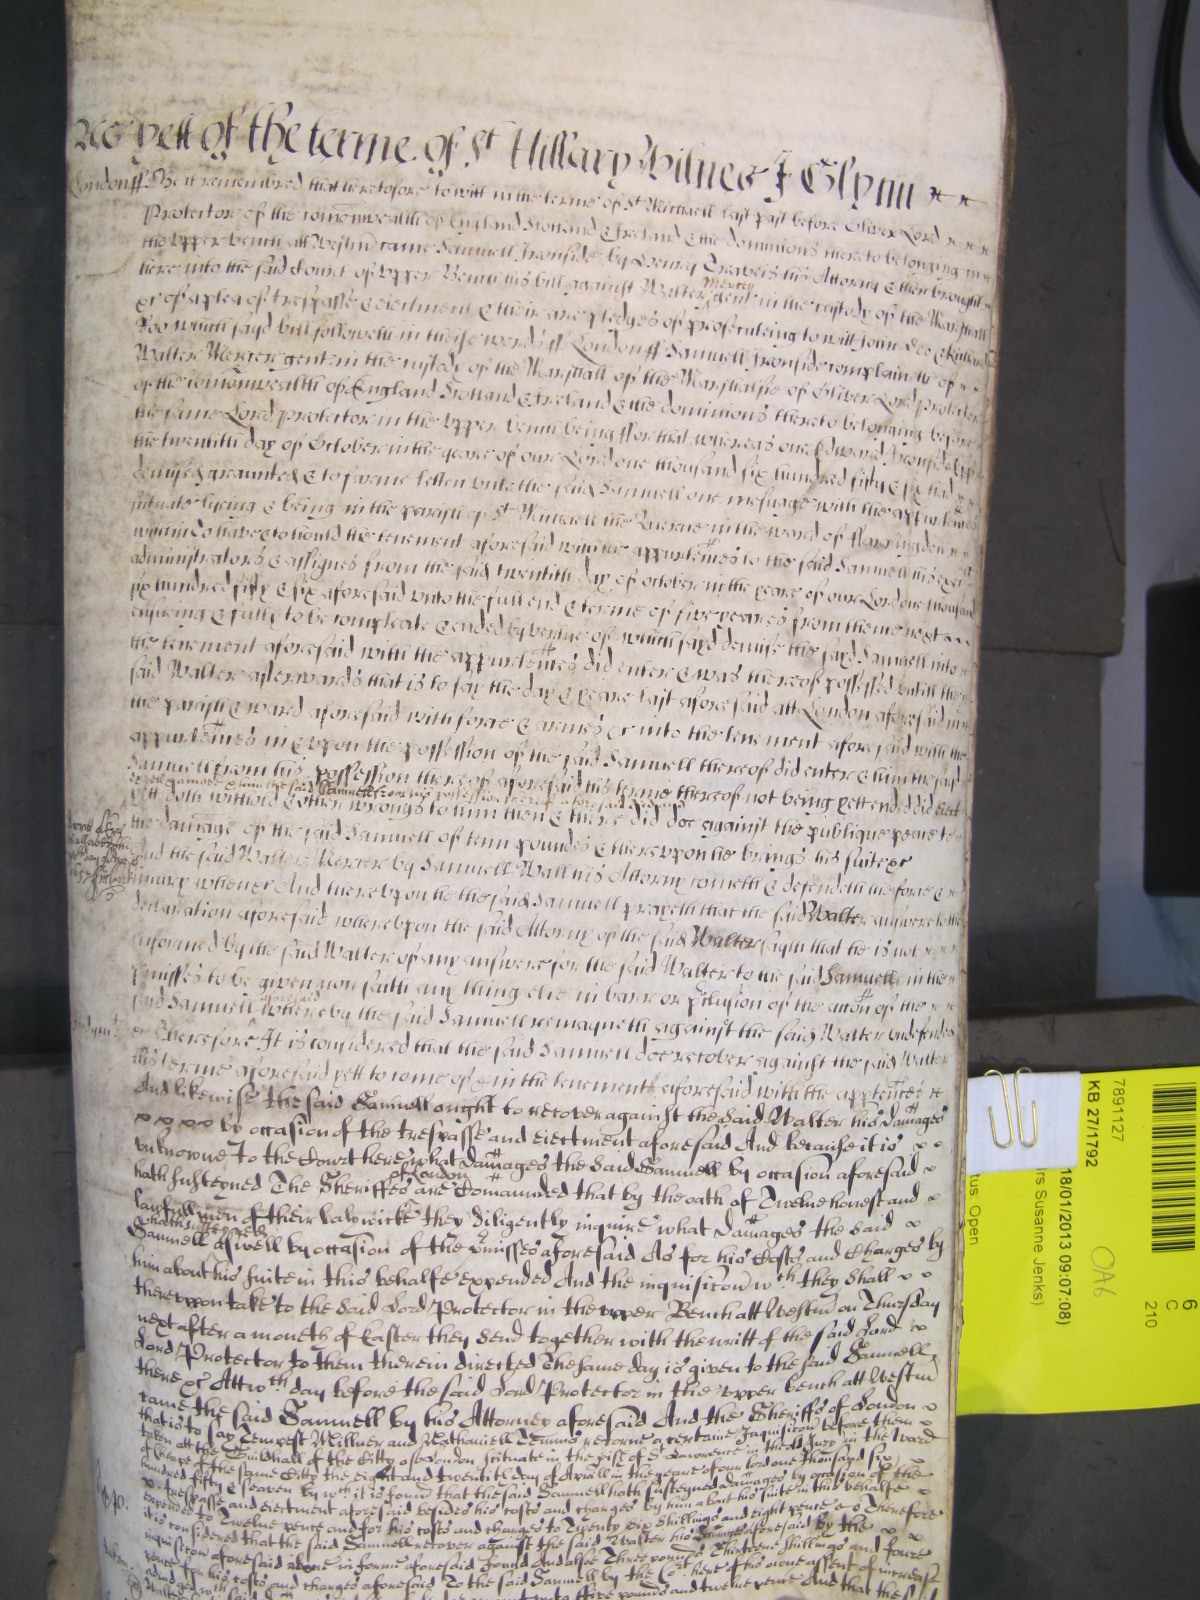 As yett of the terme of St Hillary Witnes J Glynn
London ss Be it remembred that heretofore to witt in the terme of St Michaell last past before Oliver Lord
Protector of the comonwealth of England Scotland & Ireland & the dominions thereto belonging in
the Upper bench att Westm came Samuell Ironside by Henry Travers his Attorny & then brought
here into the said Court of Upper Bench his bill against Walter Mercer gent in the custody of the Marshall
&c of a plea of trespasse & eiectment & their are pledges of prosecuteing to witt John Doe & Richard
Roo which sayd bill followeth in theise words ss London ss Samuell Ironside complaineth of
Walter Mercer gent in the custody of the Marshall of the Marshalsie of Oliver Lord Protector
of the comonwealth of England Scotland & Ireland & the dominions thereto belonging before
the same Lord protector in the upper bench being ffor that whereas one Edward Ironside
the twentith day of October in the yeare of our Lord one thousand six hundred fifty & six had
demised graunted & to farme letten unto the said Samuell one mesuage with the appurtenncs
situate lyeing & being in the parish of St Michaell the Querne in the ward of ffarringdon
within To have & to hould the tenement aforesaid with the appurtenncs to the said Samuell his
administrators & assignes from the said twentith day of october in the yeare of our Lord one thousand
six hundred fifty & six aforesaid unto the full end & terme of five yeares from thence next
ensuing & fully to be compleate & ended by vertue of which sayd demise the sayd Samuell into
the tenement aforesaid with the appurtenncs did enter & was thereof possessed untill the
said Walter afterwards that is to say the day & yeare last aforesaid att London aforesaid in
the parish & ward aforesaid with force & armes &c into the tenement aforesaid with the
appurtenncs in & upon the possession of the said Samuell thereof did enter & him the said
Samuell from his possession thereof aforesaid his terme thereof not being yett ended did eiect
expell & amove & him the said Samuell from his possession thereof aforesaid
yett doth withold & other wrongs to him then & there did doe against the publique peace to
the damage of the said Samuell of tenn pounds & thereupon he brings his suite &c
And the said Walter Mercer by Samuell Wall his Attorny cometh & defendeth the force &
iniury when &c And thereupon he the said Samuell prayeth that the said Walter answere to the
declaration aforesaid whereupon the said Attorny of the said Walter sayth that he is not
informed by the said Walter of any answere for the said Walter to the said Samuell in the
pmisses to be given nor saith any thing else in barr or pclusion of the accon of the
said Samuell aforesaid whereby the said Samuell remayneth against the said Walter undefended
&c Therefore It is considered that the said Samuell doe recover against the said Walter
his terme aforesaid yett to come of & in the tenement aforesaid with the appurtenncs
And likewise the said Samuell ought to recover against the said Walter his damages
by occasion of the trespasse and eiectment aforesaid And because it is
unknowne to the Court here what damages the said Samuell by occasion aforesaid
hath susteyned The Sheriffes of London are Comaunded that by the oath of Twelve honest and
lawfull men of their balywicke they diligently inquire what damages the said
Samuell hath susteyned aswell by occasion of the pmisses aforesaid As for his Costs and Charges by
him about his suite in this behalfe expended And the inquisicon wch they shall
thereupon take to the said Lord Protector in the upper Bench att Westm on Thursday
next after a moneth of Easter they send together with the writt of the said Lord
Lord Protector to them therein directed The same day is given to the said Samuell
there &c Att wch day before the said Lord Protector in the upper bench att Westm
came the said Samuell by his Attorney aforesaid And the Sheriffs of London
that is to say Tempest Millner and Nathaniell Temms retorne a certaine Inquisicon before them
taken att the Guildhall of the Citty of London scituate in the pish of St Lawrence in the old Jury in the ward
of Cheape of the same Citty the eight and twentith day of Aprill in the yeare of our lord one thousand six
hundred fifty & seaven by wch it is found that the said Samuell hath susteyned damages by occasion of the
trespasse and eiectment aforesaid besides his costs and charges by him about his suite in this behalfe
expended to Twelve pence and for his costs and charges to Twenty six shillings and eight pence Therefore
it is considered that the said Samuell recover against the said Walter his damages aforesaid by the
inquisicon aforesaid above in forme aforesaid found And alsoe Three pounds Thirteene shillings and foure
pence for his costs and charges aforesaid To the said Samuell by the Cort here of his owne assent of increase
KB 27/1792
7891127
18/01/2013 09:07:08)
rs Susanne Jenks)
tus: Open
OA6
6
C
210